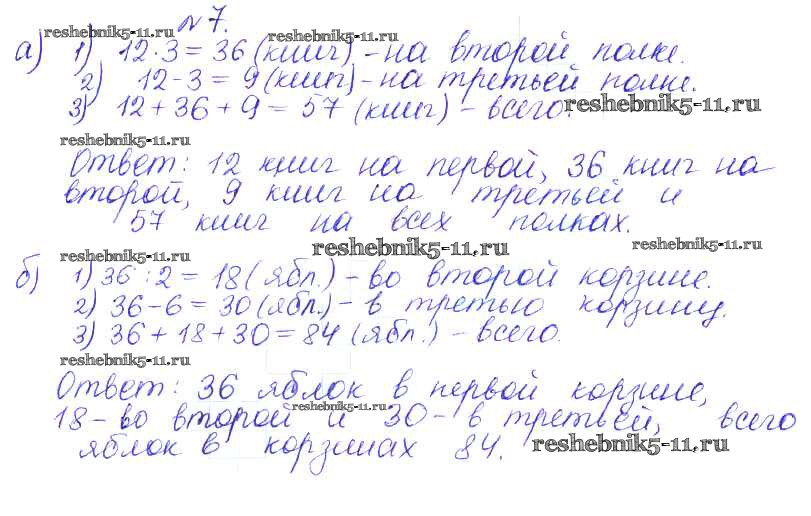 №7.
reshebnik5-11.ru
а) 1) 12·3=36 (книг) - на второй полке.
2) 12-3=9 (книг) - на третьей полке.
3) 12+36+9=57 (книг) - всего.
reshebnik5-11.ru
reshebnik5-11.ru
Ответ: 12 книг на первой, 36 книг на
второй, 9 книг на третьей и
57 книг на всех полках.
reshebnik5-11.ru
reshebnik5-11.ru
reshebnik5-11.ru
б) 1) 36:2=18 (ябл.) - во второй корзине.
2) 36-6=30 (ябл.) - в третью корзину.
3) 36+18+30=84 (ябл.) - всего.
reshebnik5-11.ru
Ответ: 36 яблок в первой корзине,
reshebnik5-11.ru
18 - во второй и 30 - в третьей, всего
яблок в корзинах 84.
reshebnik5-11.ru